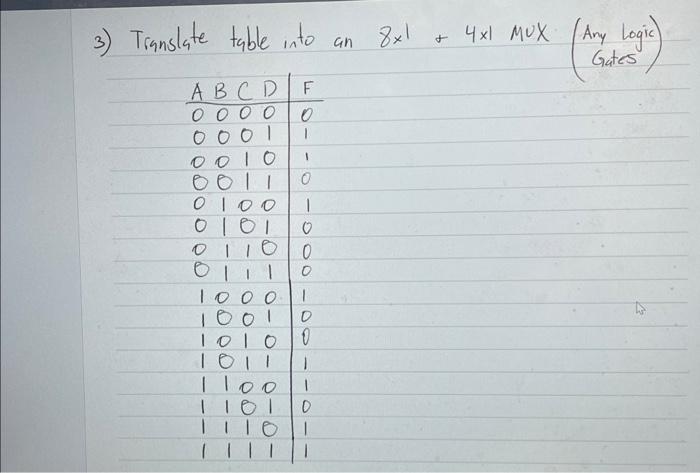 3) Translate table into an 8x1 + 4x1 MUX (Any Logic Gates)
A B C D F
0 0 0 0 0
0 0 0 1 1
0 0 1 0 1
0 0 1 1 0
0 1 0 0 1
0 1 0 1 0
0 1 1 0 0
0 1 1 1 0
1 0 0 0 1
1 0 0 1 0
1 0 1 0 0
1 0 1 1 1
1 1 0 0 1
1 1 0 1 0
1 1 1 0 1
1 1 1 1 1